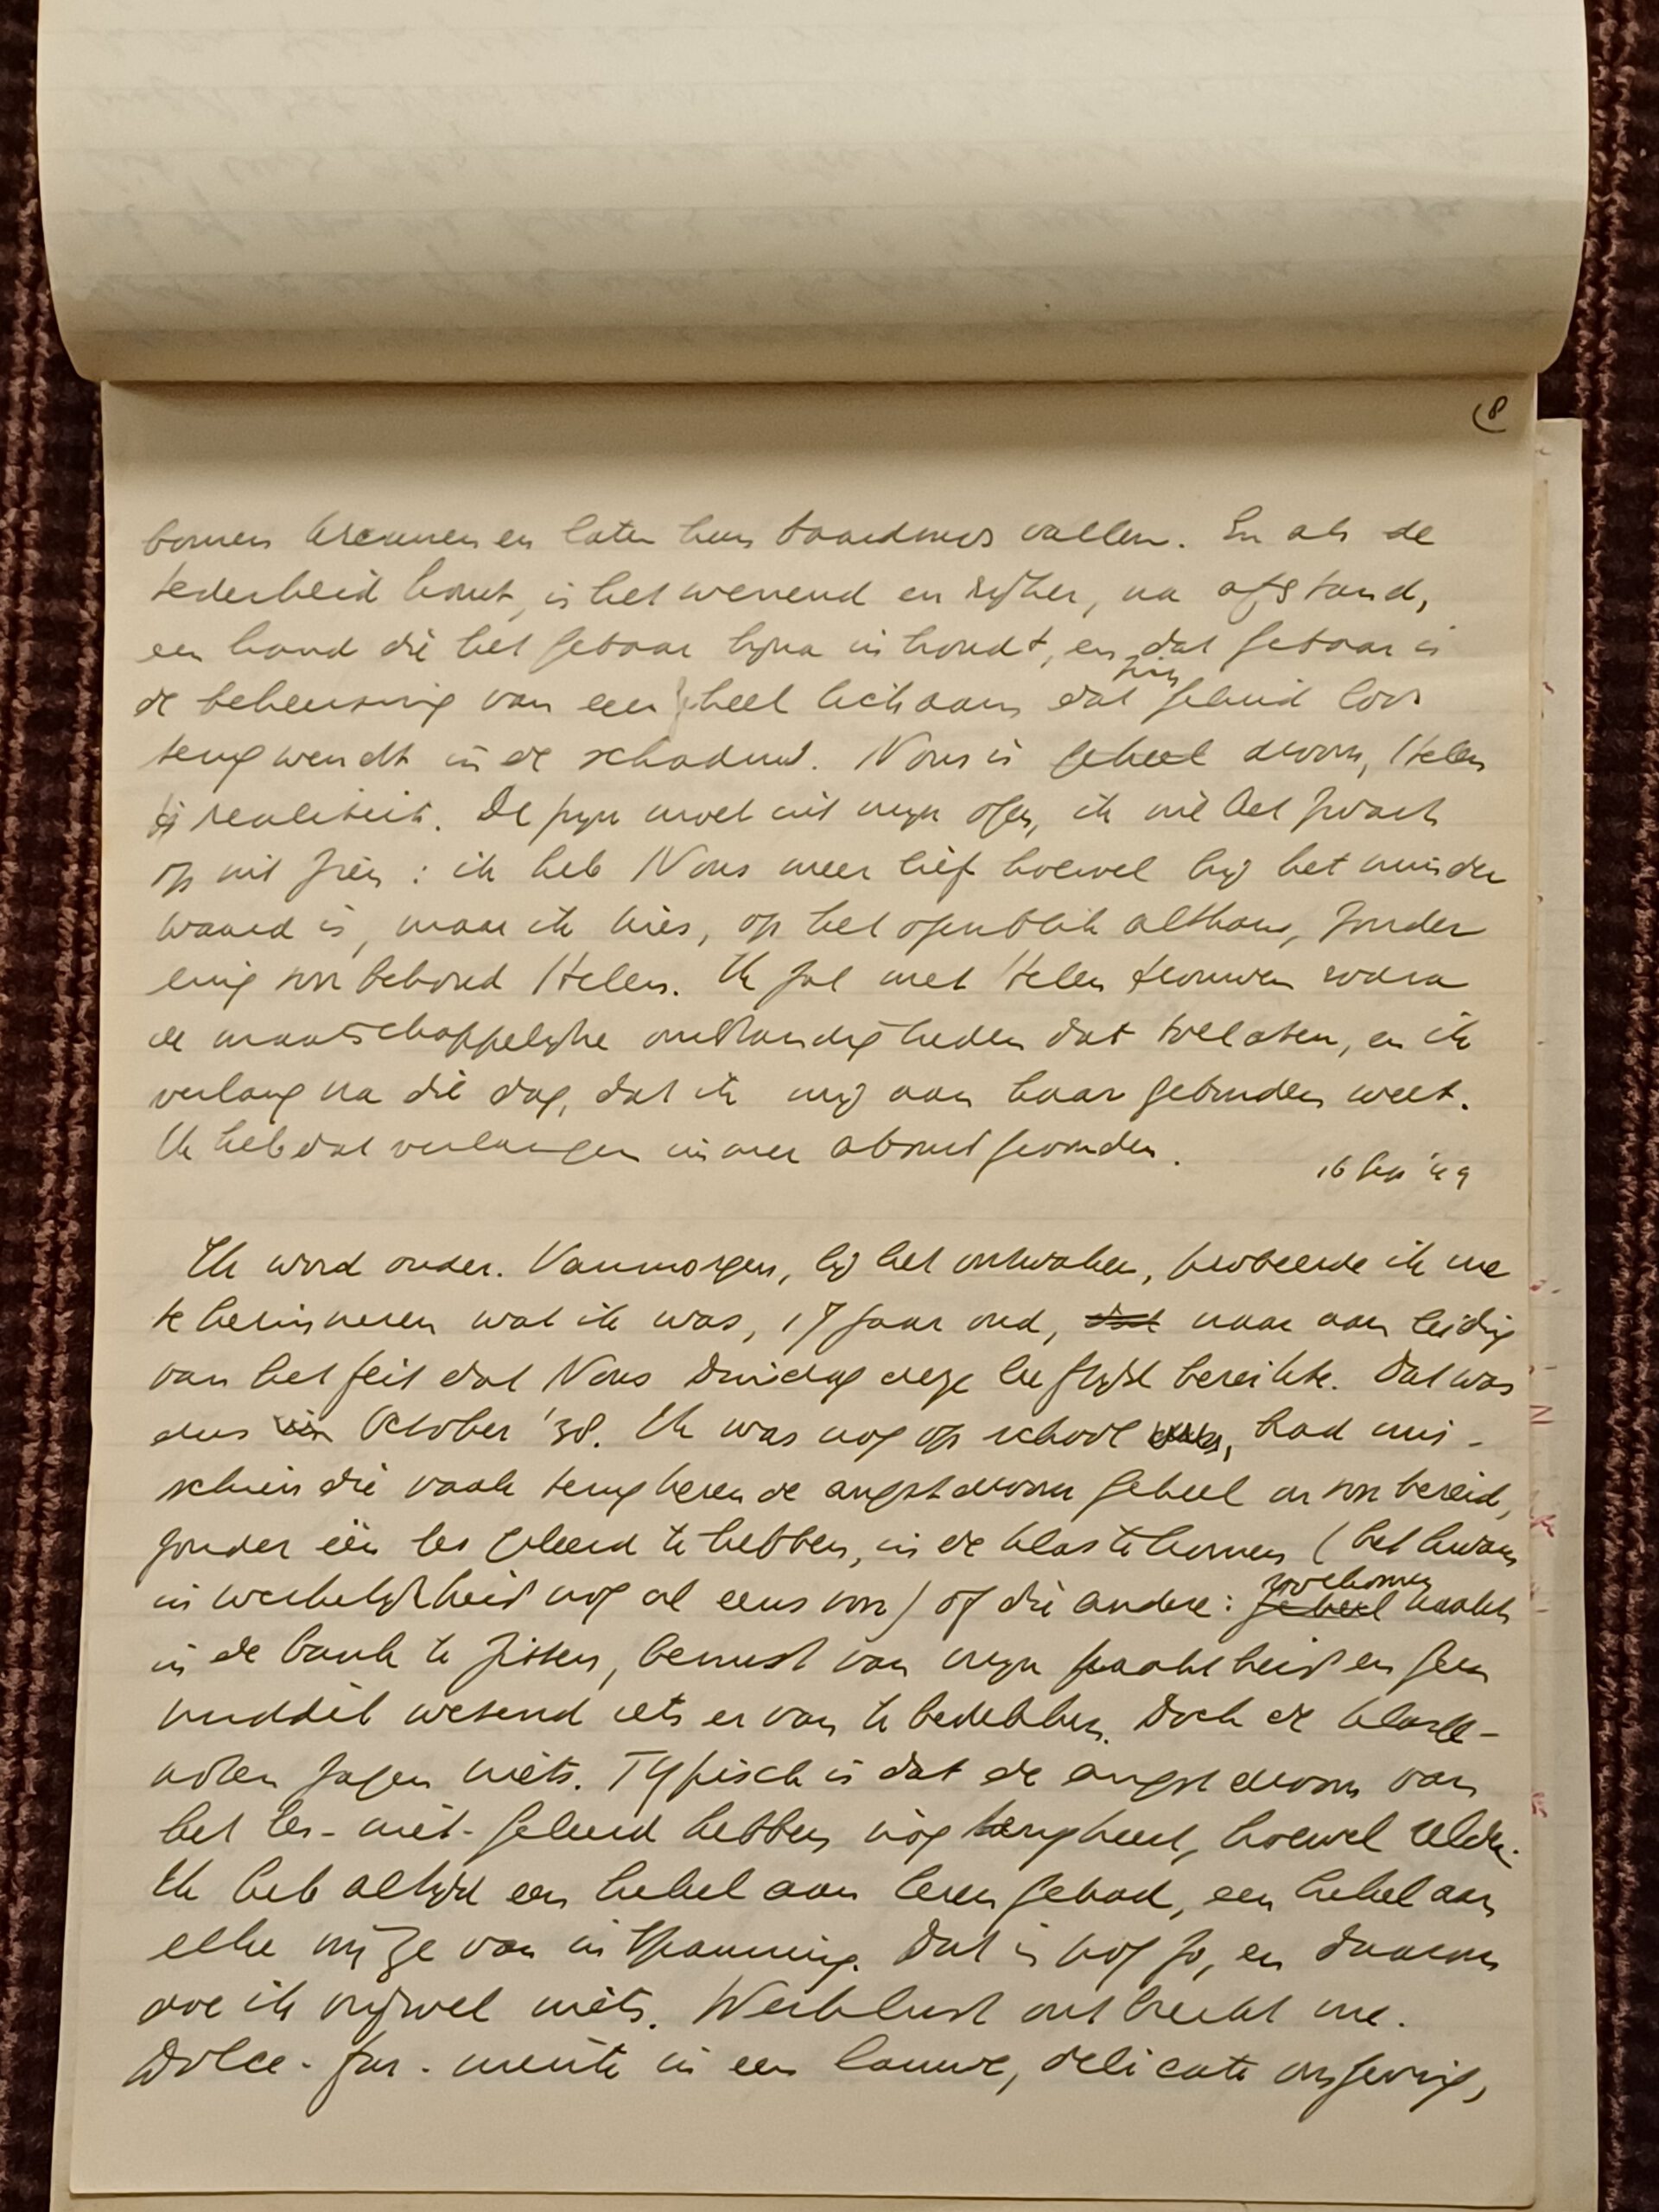 8
bomen kreunen en laten hun baardmos vallen. En als de
tederheid komt, is het wenend en zijher, na afstand,
een hand die het gebaar bijna inhoudt, en dat gebaar is
de beheersing van een heel lichaam dat zich geluidloos
terugwendt in de schaduw. Nous is geheel droom, Helen
is realiteit. De pijn moet uit mijn ogen, ik wil het zwart
op wit zien: ik heb Nous meer lief hoewel hij het minder
waard is, maar ik kies, op het ogenblik althans, zonder
enig voorbehoud Helen. Ik zal met Helen trouwen zodra
de maatschappelijke omstandigheden dat toelaten, en ik
verlang na die dag, dat ik mij aan haar gebonden weet.
Ik heb dat verlangen immer absurd gevonden.
16 Sep '49
Ik word ouder. Vanmorgen, bij het ontwaken, probeerde ik me
te herinneren wat ik was, 17 jaar oud, dat naar aanleiding
van het feit dat Nous Dinsdag deze leeftijd bereikte. Dat was
dus in October '38. Ik was nog op school, had mis-
schien die vaak terugkerende angstdroom geheel onvoorbereid,
zonder één les geleerd te hebben, in de klas te komen (het kwam
in werkelijkheid nogal eens voor) of die andere: geheel volkomen naakt
in de bank te zitten, bewust van mijn naaktheid en geen
middel wetend iets ervan te bedekken. Doch de klasge-
noten zagen niets. Typisch is dat de angstdroom van
het les-niet-geleerd hebben nóg terugkeert, hoewel zelden.
Ik heb altijd een hekel aan leren gehad, een hekel aan
elke wijze van inspanning. Dat is nog zo, en daarom
doe ik vrijwel niets. Werklust ontbreekt me.
Dolce-far-niente in een lauwe, delicate omgeving,